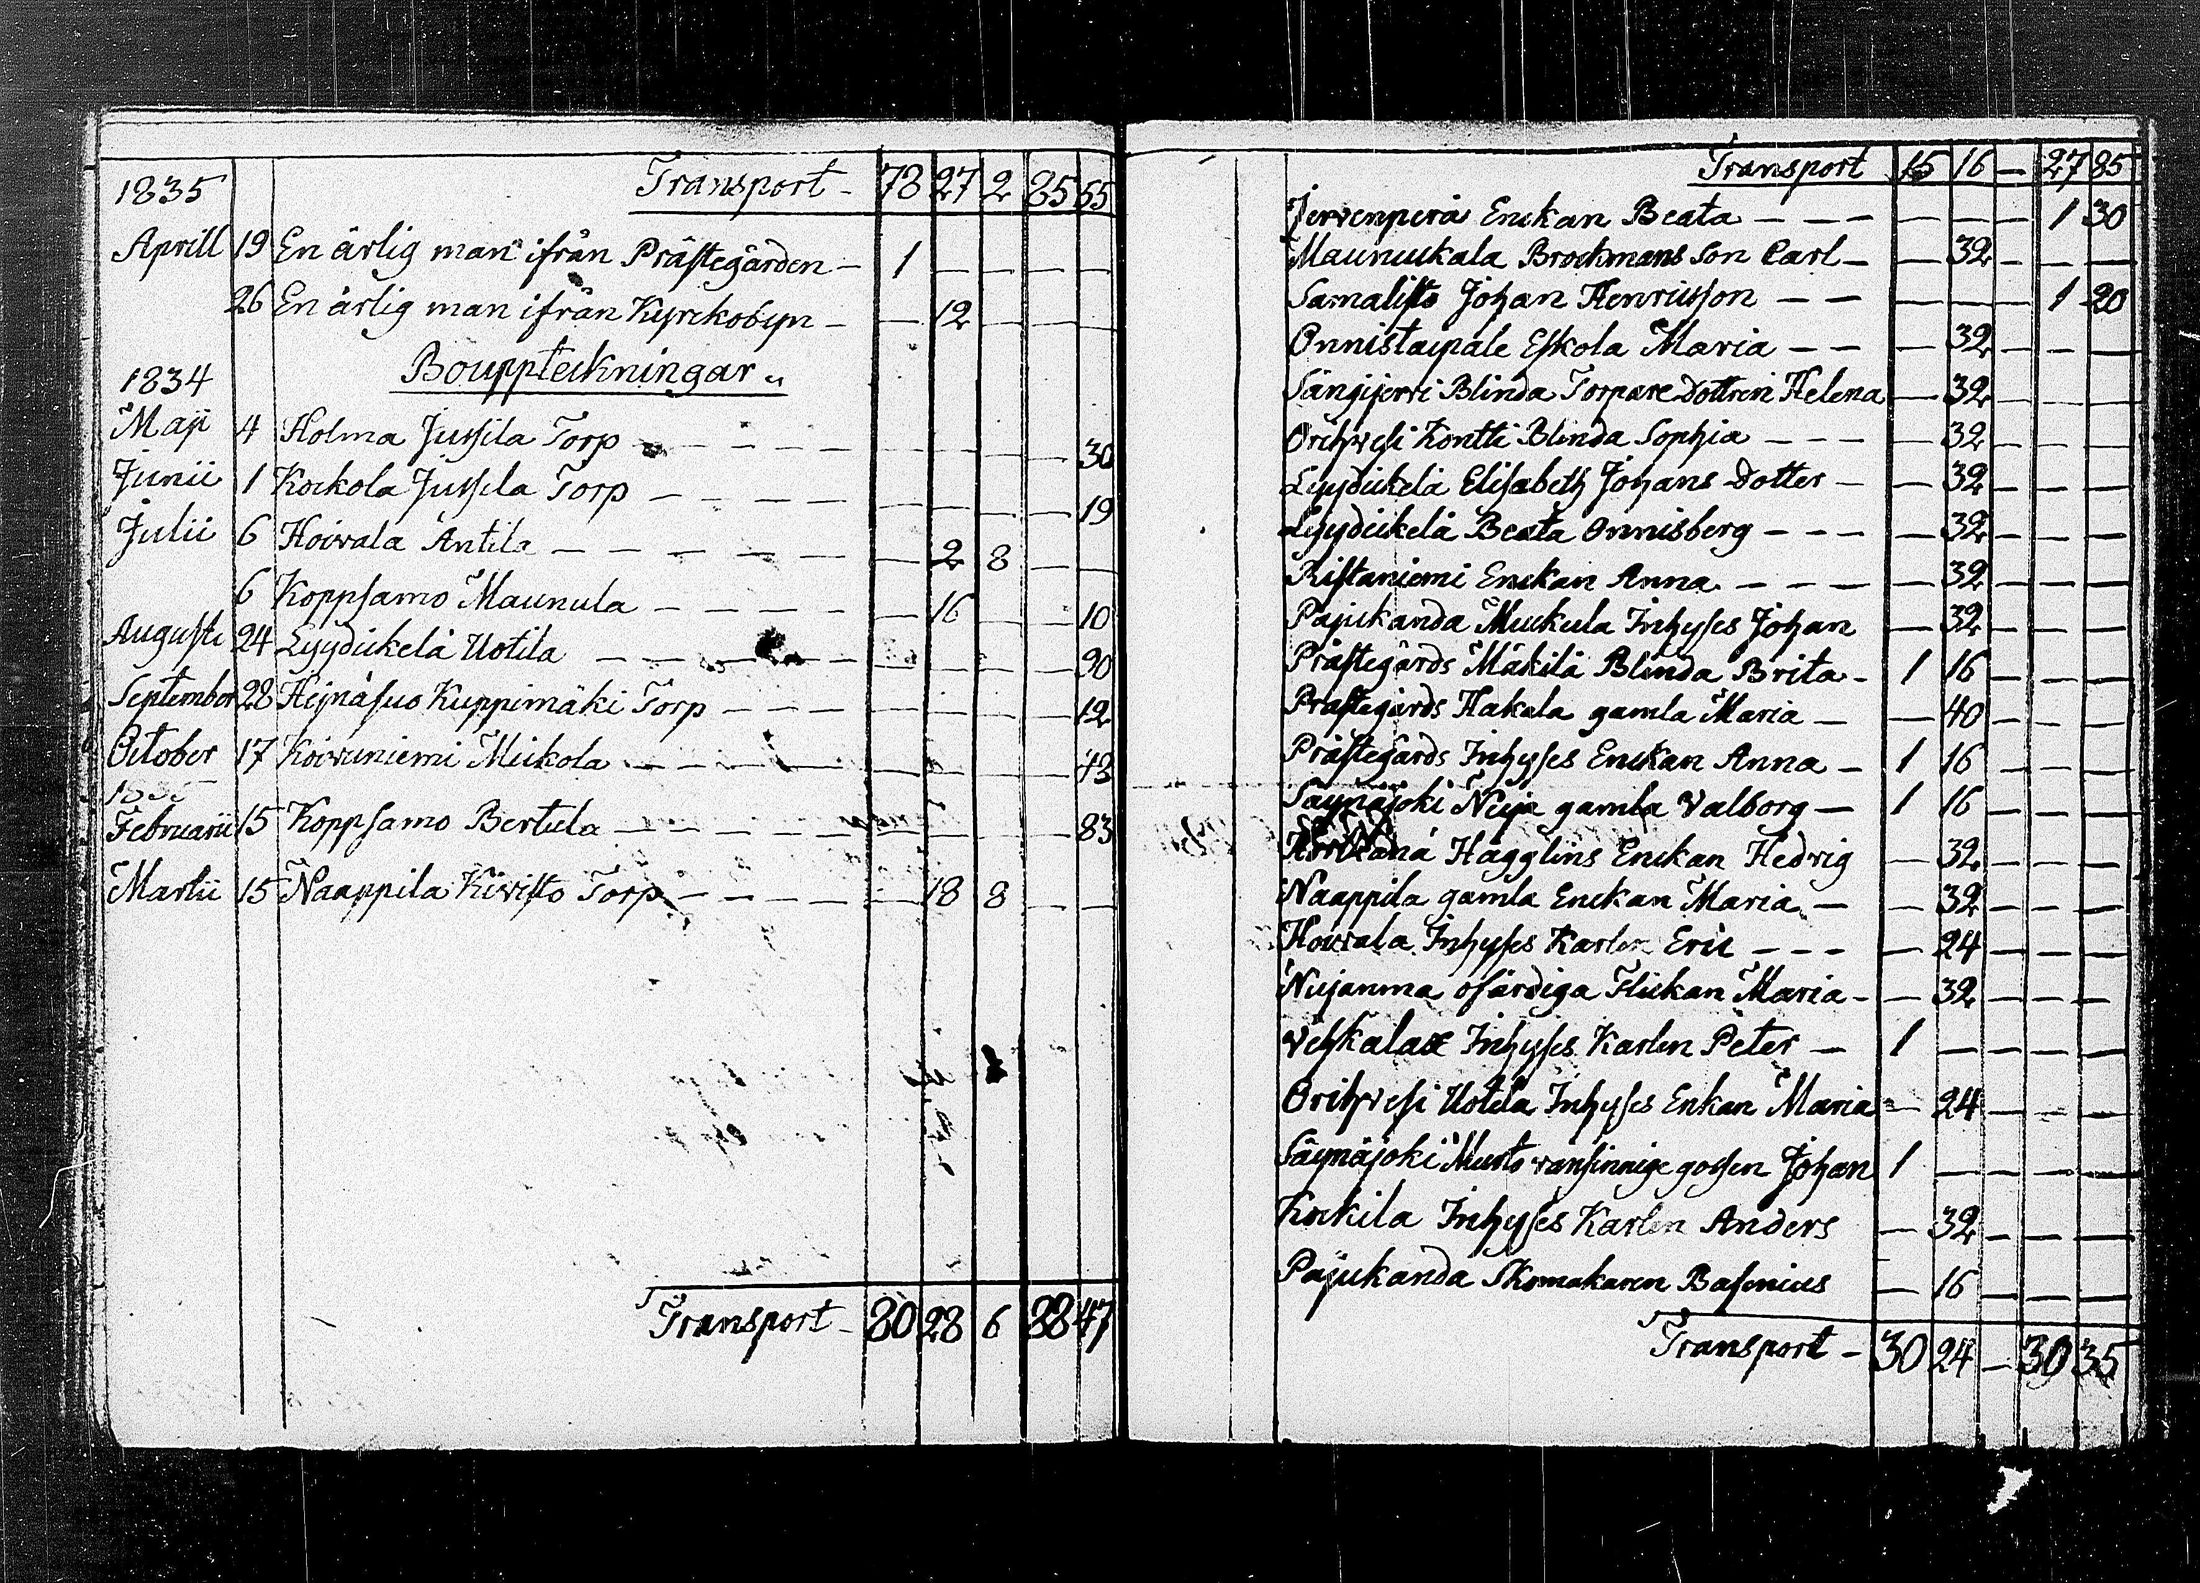 1835 Transport - 78 27 2 85 55
Aprill 19 En ärlig man ifrån Prästegården - 1 — — — —
26 En ärlig man ifrån Kyrckobyn - — 12 — — —
Bouppteckningar
1834
Maji 4 Holma Jussila Torp — — — — 30
Junii 1 Kockola Jussila Torp — — — — 19
Julii 6 Hoivala Antila — 2 8 — —
6 Koppsamo Maunula — 16 — — 10
Augusti 24 Lyydickelä Uotila — — — — 90
September 28 Heinäsuo Kuppimäki Torp — — — — 12
October 17 Koivuniemi Mickola — — — — 43
1835
Februarii 15 Koppsamo Bertula — — — — 83
Martii 15 Naappila Kivisto Torp — 18 8 — —
Transport - 80 28 6 88 47
Transport 15 16 — 27 85
Jervenperä Enckan Beata — — — 1 30
Maunuckala Brockmans Son Carl — 32 — — —
Samalisto Johan Henricsson — — — 1 20
Onnistaipale Eskola Maria — 32 — — —
Sängijervi Blinda Torpare Dottren Helena — 32 — — —
Orihvesi Kontti Blinda Sophia — 32 — — —
Lyydickelä Elisabeth Johans Dotter — 32 — — —
Lyydickelä Beata Onnisberg — 32 — — —
Ristaniemi Enckan Anna — 32 — — —
Pajukanda Muckula Inhyses Johan — 32 — — —
Prästegårds Mäkilä Blinda Brita - 1 16 — — —
Prästegårds Hakala gamla Maria — 40 — — —
Prästegårds Inhyses Enckan Anna - 1 16 — — —
Säynäjoki Neija gamla Valborg — 1 16 — — —
Hägglins Enckan Hedvig — 32 — — —
Naappila gamla Enckan Maria — 32 — — —
Hoivala Inhyses Karlen Eric — 24 — — —
Niejanma ofärdiga Flickan Maria - — 32 — — —
Vehkalax Inhyses Karlen Peter — 1 — — — —
Orihvesi Uotila Inhyses Enkan Maria — 24 — — —
Säynäjoki Musto vansinnige gossen Johan 1 — — — —
Kockila Inhyses Karlen Anders — 32 — — —
Pajukanda Skomakaren Basenius — 16 — — —
Transport - 30 24 — 30 35